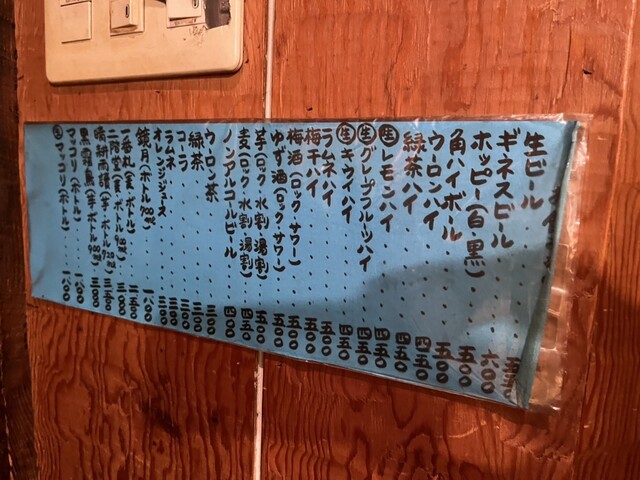 生ビール・・・・・五五〇
ギネスビール・・・・六〇〇
ホッピー（白 黒）・・・五〇〇
角ハイボール・・・・五〇〇
ウーロンハイ・・・・四五〇
緑茶ハイ・・・・四五〇
生レモンハイ・・・・四五〇
生グレープフルーツハイ・・・四五〇
生キウイハイ・・・・四五〇
ラムネハイ・・・・五〇〇
梅干ハイ・・・・五〇〇
梅酒（ロック サワー）・・・五〇〇
ゆず酒（ロック サワー）・・・五〇〇
芋（ロック 水割 湯割）・・・五〇〇
麦（ロック 水割 湯割）・・・四五〇
ノンアルコールビール・・・四〇〇
ウーロン茶・・・・三〇〇
緑茶・・・・二〇〇
コーラ・・・・三〇〇
ラムネ・・・・二〇〇
オレンジジュース・・・・三〇〇
鏡月（ボトル 700ml）・・・一八〇〇
一番札（麦・ボトル）・・・二五〇〇
二階堂（麦・ボトル）・・・三〇〇〇
黒霧島（芋・ボトル 900ml）・・・三〇〇〇
マッコリ（ボトル）・・・一八〇〇
生マッコリ（ボトル）・・・一八〇〇